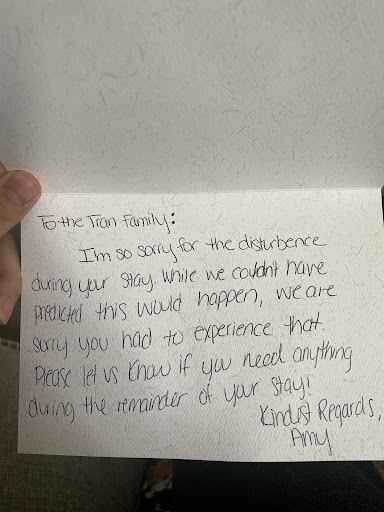 To the Tran family:
I'm so sorry for the disturbence
during your stay. While we couldn't have
predicted this would happen, we are
sorry you had to experience that.
Please let us know if you need anything
during the remainder of your stay!
Kindest Regards,
Amy